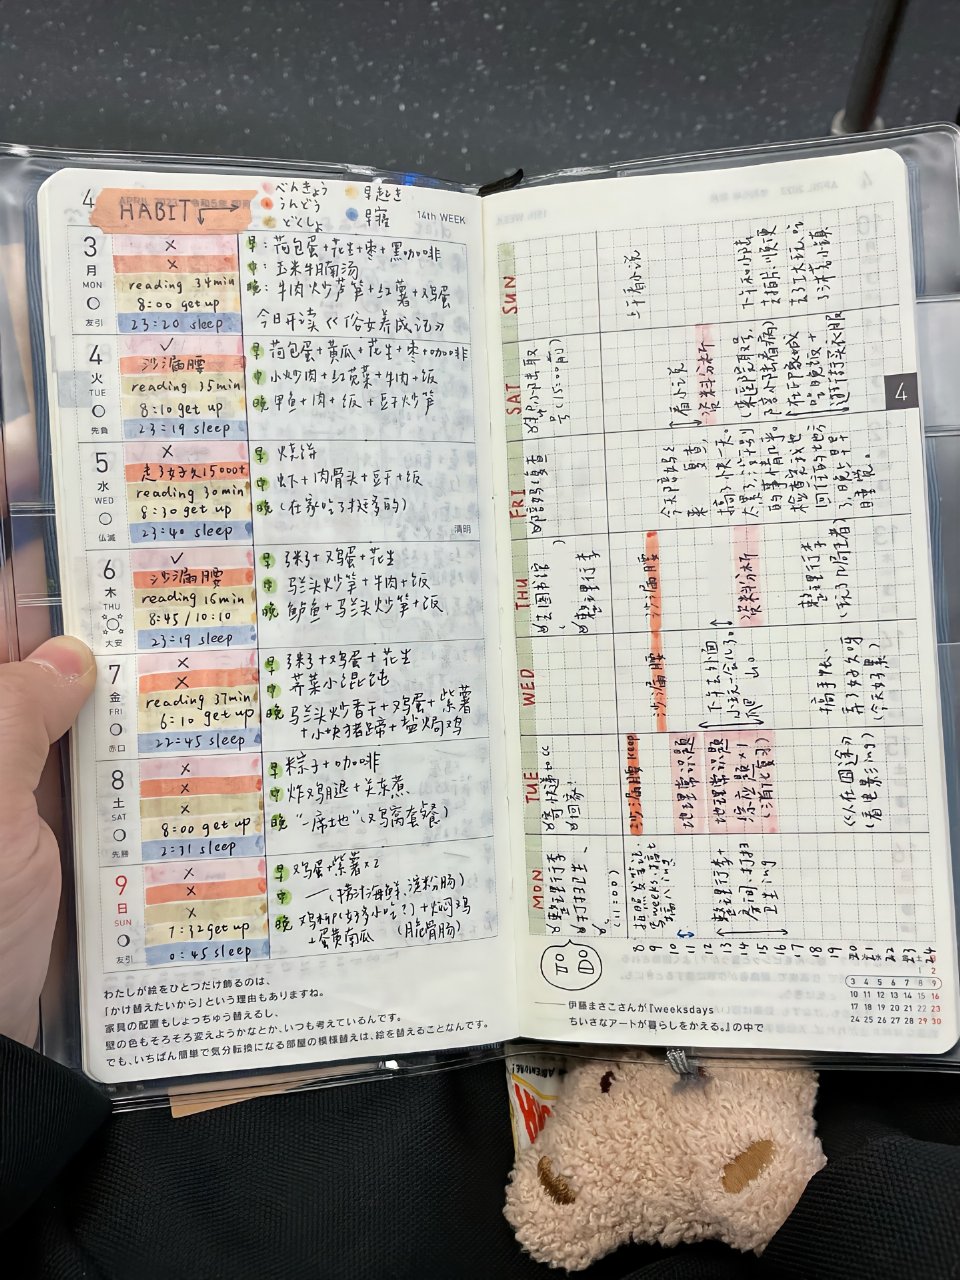 4
HABIT
べんきょう
うんどう
どくしょ
早起き
早寝
14th WEEK
3
月
MON
友引
×
×
reading 34min
8:00 get up
23:20 sleep
早：荷包蛋+花生+枣+黑咖啡
中：玉米牛腩汤
晚：牛肉炒芦笋+红薯+鸡蛋
今日开读《俗女养成记》
4
火
TUE
先負
✓
沙漏腰
reading 35min
8:10 get up
23:19 sleep
早 荷包蛋+黄瓜+花生+枣+咖啡
中 小炒肉+红苋菜+牛肉+饭
晚 甲鱼+肉+饭+豆干炒笋
5
水
WED
仏滅
×
走了好久15000+
reading 30min
8:30 get up
23:40 sleep
早 烧饼
中 虾+肉骨头+豆干+饭
晚 (在家吃了挺多的)
清明
6
木
THU
大安
✓
沙漏腰
reading 16min
8:45/10:10
23:19 sleep
早 粥+鸡蛋+花生
中 马兰头炒笋+牛肉+饭
晚 鲈鱼+马兰头炒笋+饭
7
金
FRI
赤口
×
×
reading 37min
6:10 get up
22:45 sleep
早 粥+鸡蛋+花生
中 荠菜小混饨
晚 马兰头炒香干+鸡蛋+紫薯
+小块猪蹄+盐焗鸡
8
土
SAT
先勝
×
×
8:00 get up
2:31 sleep
早 粽子+咖啡
中 炸鸡腿+关东煮
晚 "一席地"(鸡窝套餐)
9
日
SUN
友引
×
×
×
7:32 get up
0:45 sleep
早 鸡蛋+紫薯×2
中 —(捞汁海鲜,淀粉肠)
晚 鸡柳(好多小吃?)+焖鸡
+蛋黄南瓜 (脆骨肠)
わたしが絵をひとつだけ飾るのは、
「かけ替えたいから」という理由もありますね。
家具の配置もしょっちゅう替えるし、
壁の色もそろそろ変えようかなとか、いつも考えているんです。
でも、いちばん簡単で気分転換になる部屋の模様替えは、絵を替えることなんです。
SUN
上午看小说
下午和小陆
去拍片,顺便
去了
SAT
小陆取
号(15:00前)
看小说
资料分析
来医院取号,
陪小陆看病)
在
吃晚饭+
逛街买衣服
FRI
陪妈妈复查
今天陪妈妈
来复查,
搞了快一天。
太累了,没什么特别
的事情几乎。
检查完找地
间住的地方
了,晚上早早
睡觉。
THU
去图书馆
整理行李
沙漏腰
资料分析
整理行李
WED
沙漏腰
下午去外面
小玩一会儿了
爬山
搞手帐、
弄了好久呀
(今天好累)
TUE
寄快递
回家!
沙漏腰 keep
地理常识题
地理常识题
综应题×1
(消化复习)
《人在囧途》
(看电影ing)
MON
整理行李
打扫卫生、
(11:00)
拍照发笔记、
写weeks,搞七
搞八ing
整理行李+
房间,打扫
卫生ing
TO
DO
8 9 10 11 12 13 14 15 16 17 18 19 20 21 22 23 24
4
伊藤まさこさんが『weeksdays
ちいさなアートが暮らしをかえる。』の中で
月 火 水 木 金 土 日
1 2
3 4 5 6 7 8 9
10 11 12 13 14 15 16
17 18 19 20 21 22 23
24 25 26 27 28 29 30
ADVENTURE!